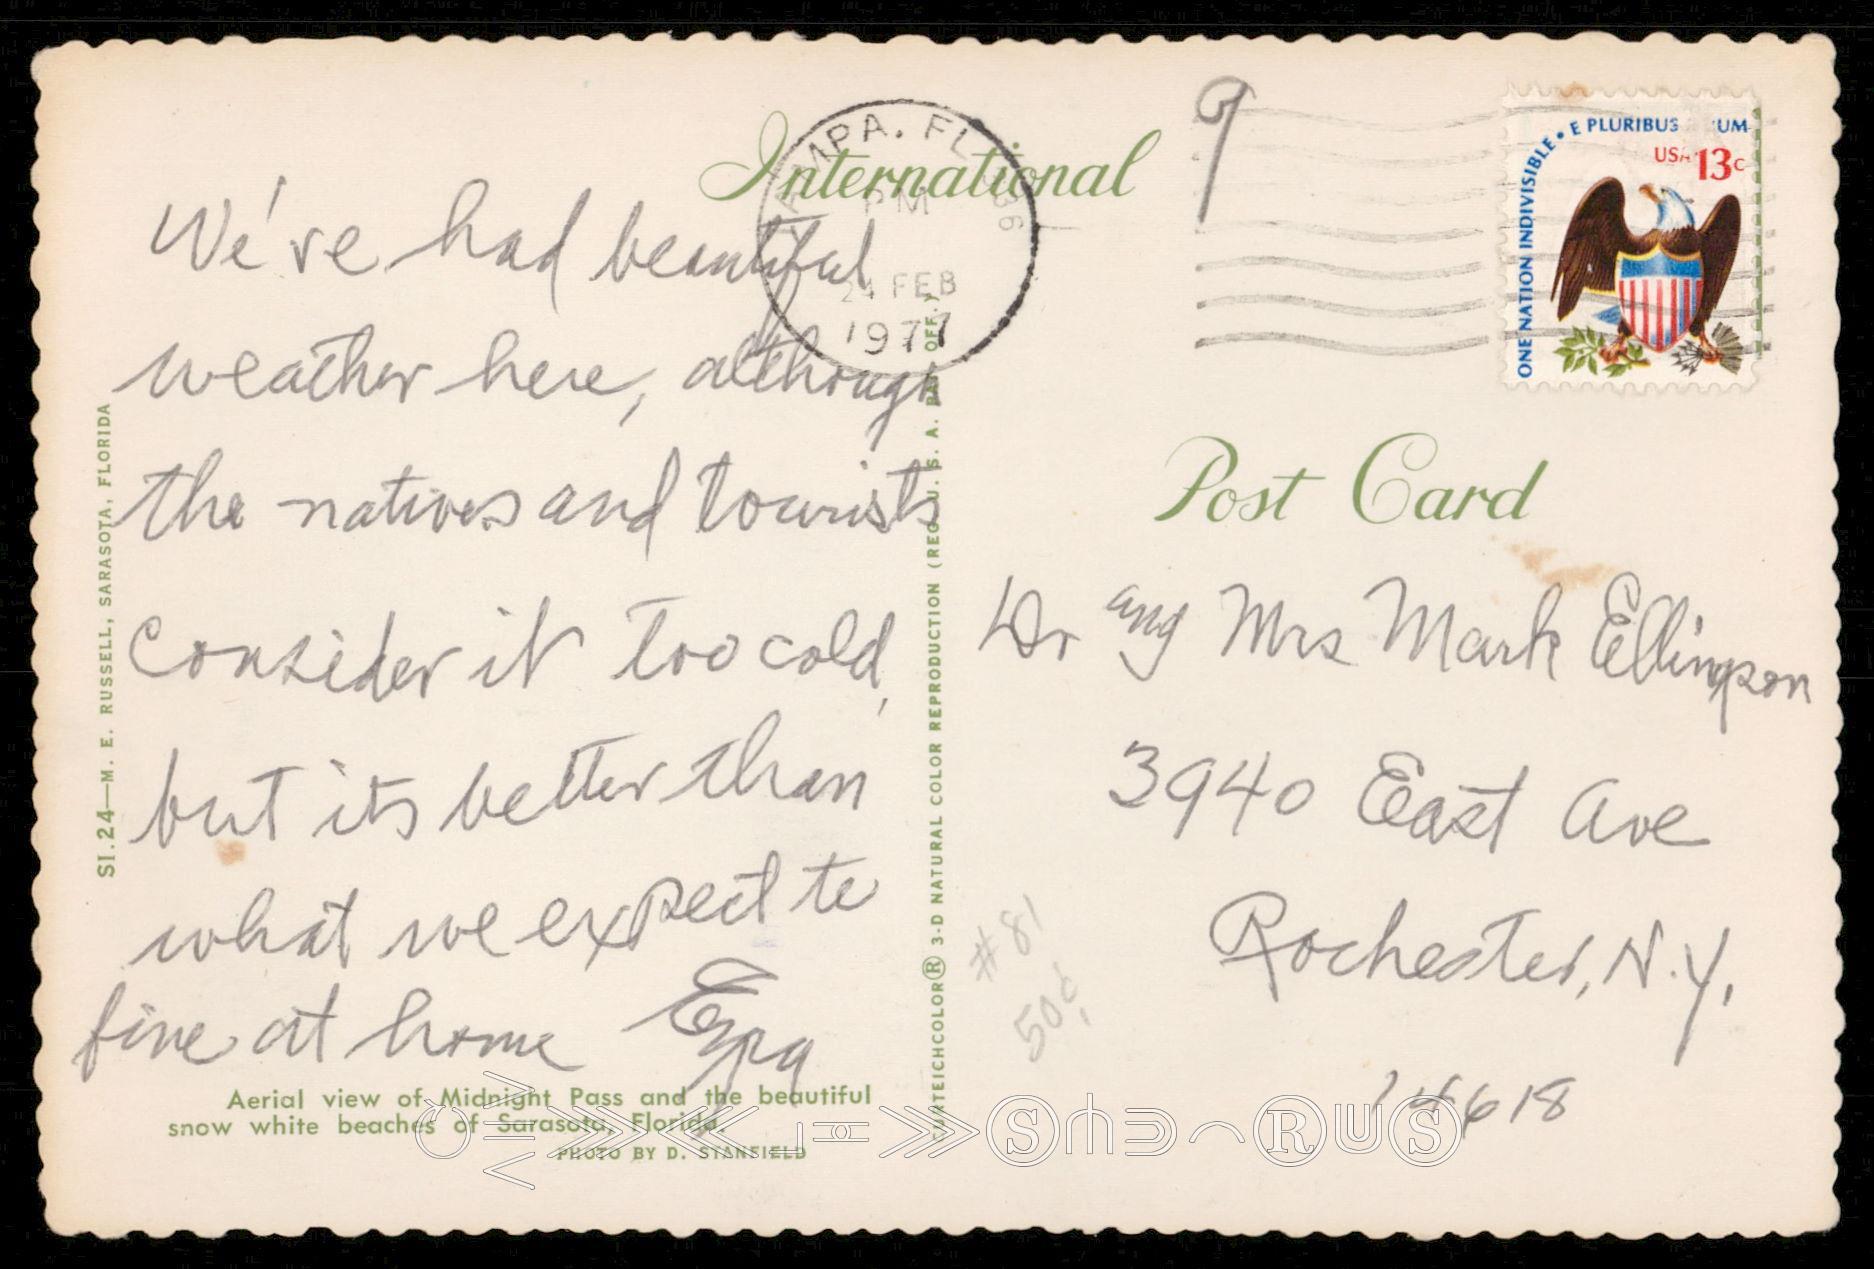 International
TAMPA. FL 336
PM
24 FEB
1977
9
E PLURIBUS UM
USA 13c
ONE NATION INDIVISIBLE
Post Card
We've had beautiful
weather here, although
the natives and tourists
consider it too cold,
but its better than
what we expect to
find at home
Dr and Mrs Mark Ellingson
3940 East Ave
Rochester, N.Y.
14618
#81
50¢
SI.24—M. E. RUSSELL, SARASOTA, FLORIDA
CURTEICHCOLOR® 3-D NATURAL COLOR REPRODUCTION (REG. U. S. A. PAT. OFF.)
Aerial view of Midnight Pass and the beautiful
snow white beaches of Sarasota, Florida.
PHOTO BY D. STANFIELD